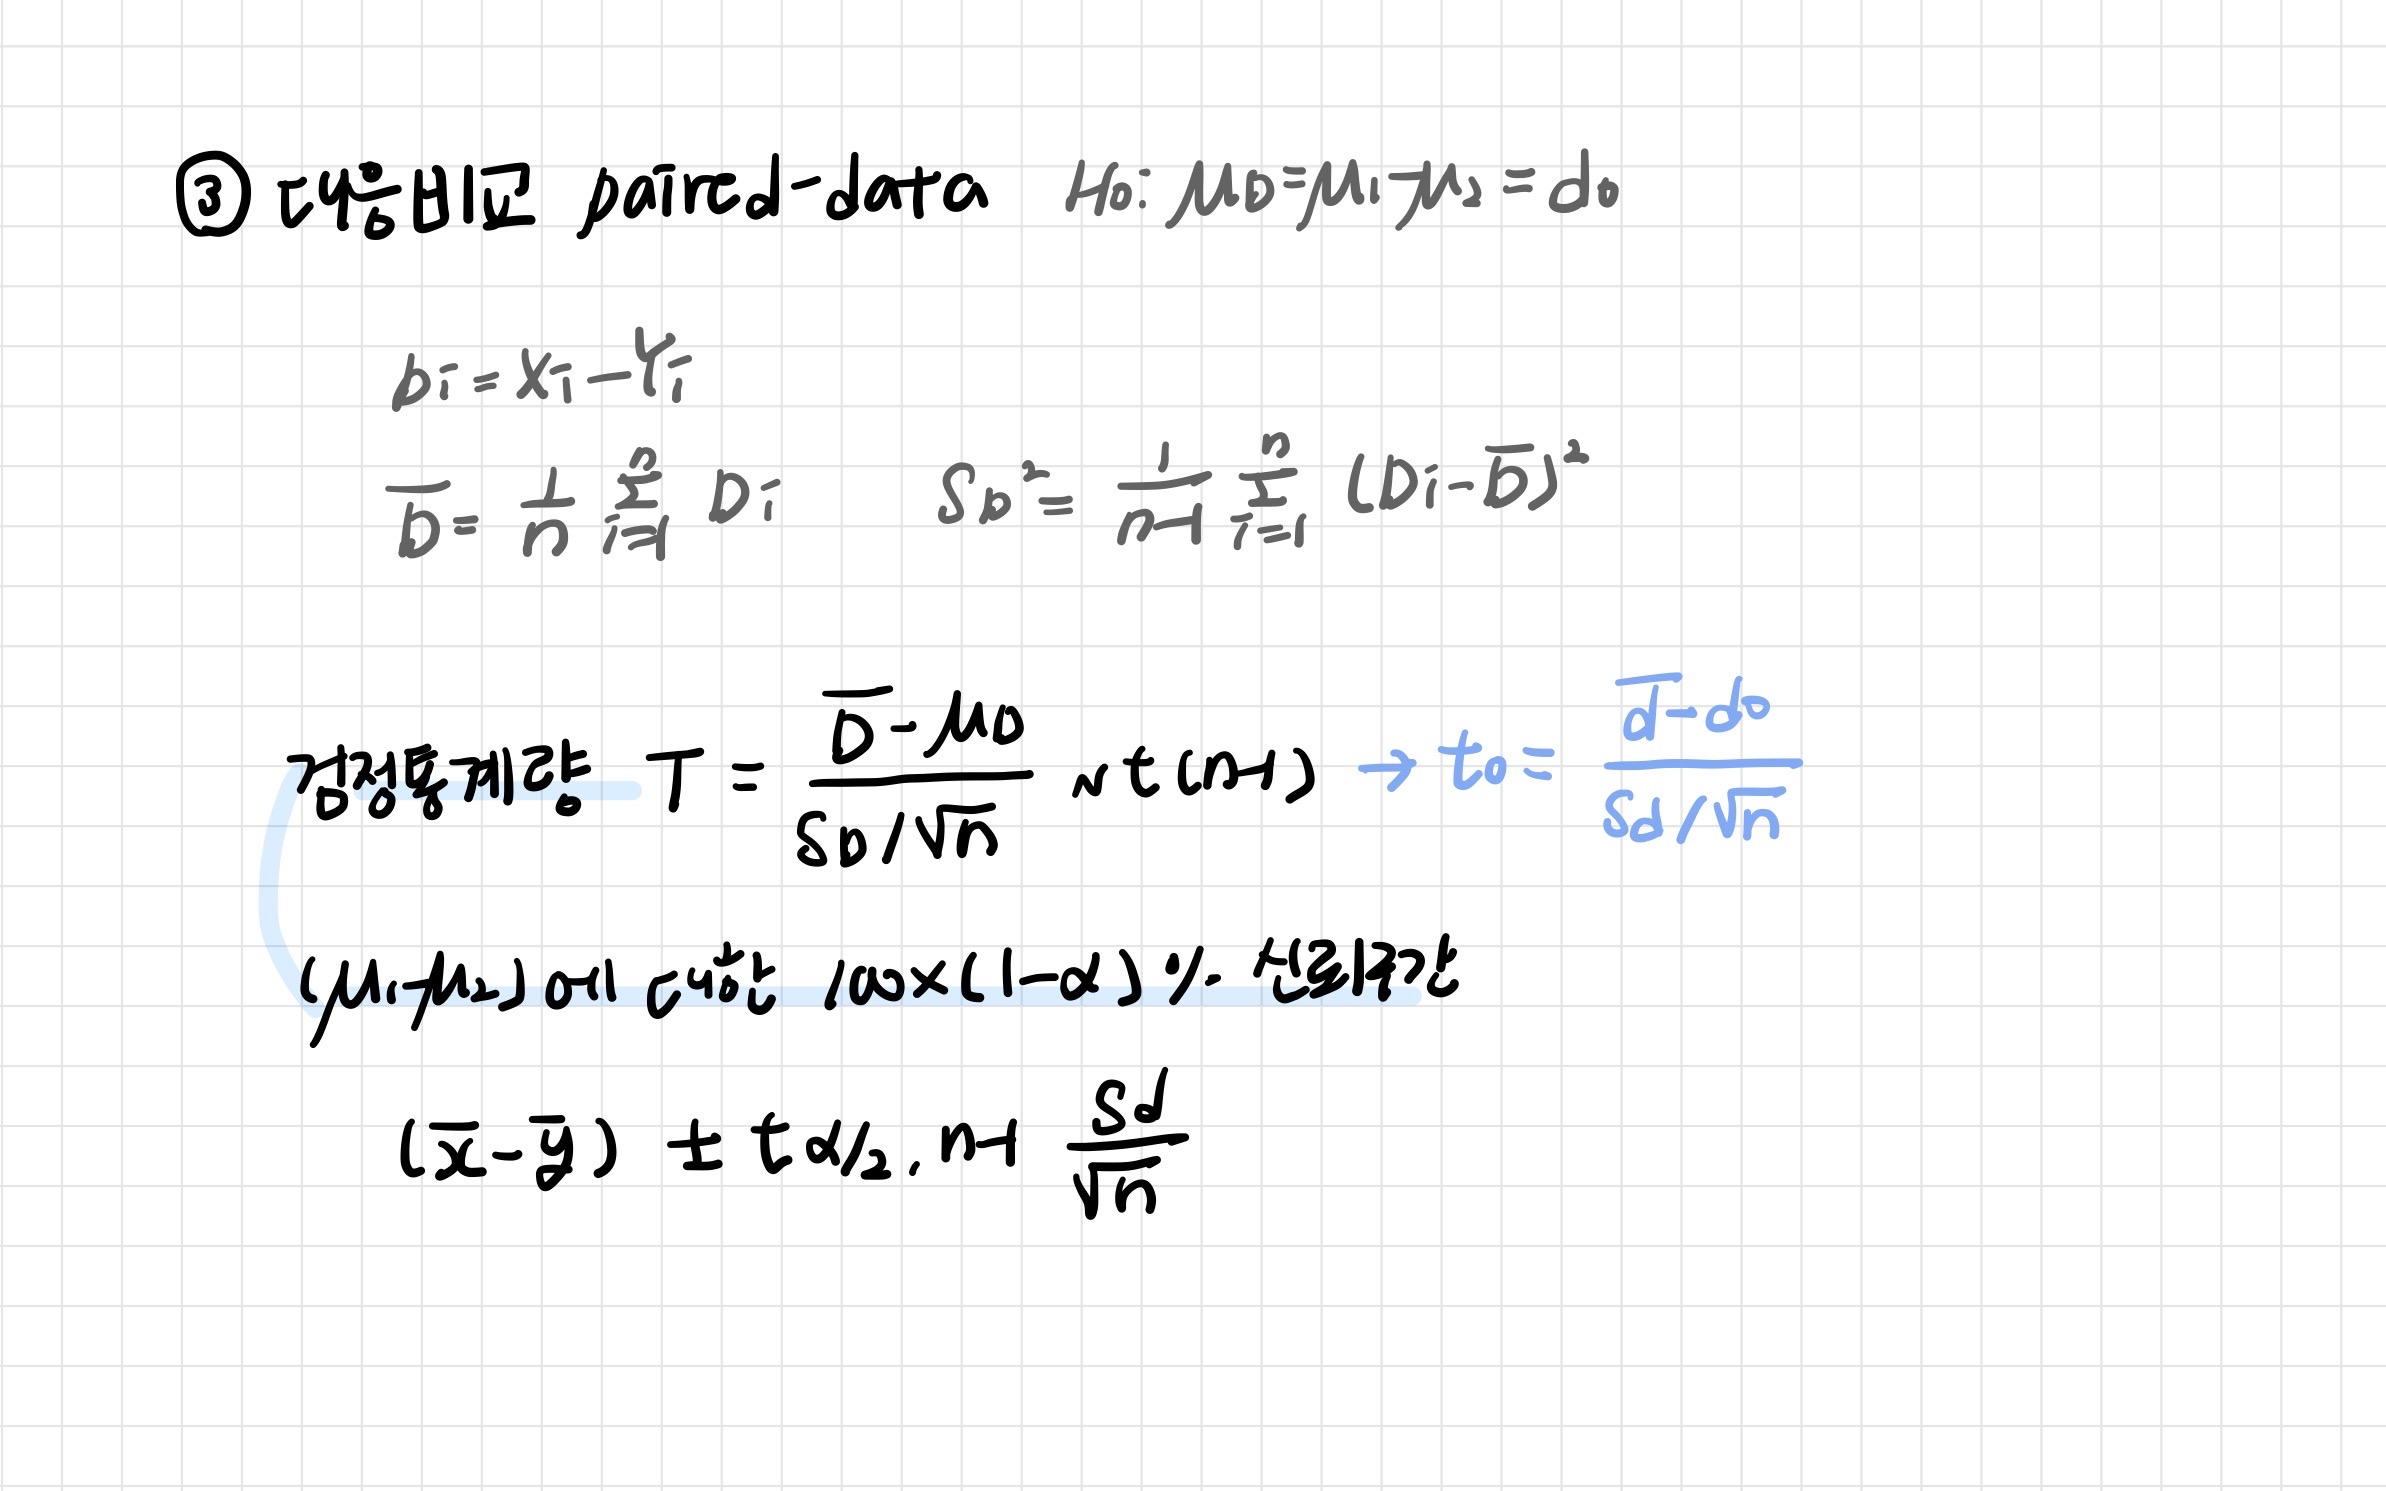 ③ 대응비교 paired-data H₀: μ_D = μ₁ - μ₂ = d₀
Dᵢ = Xᵢ - Yᵢ
D̅ = 1/n Σ_{i=1}^{n} Dᵢ S_D² = 1/(n-1) Σ_{i=1}^{n} (Dᵢ - D̅)²
검정통계량 T = (D̅ - μ_D) / (S_D/√n) ~ t(n-1) → t₀ = (d̅ - d₀) / (S_d/√n)
(μ₁-μ₂)에 대한 100×(1-α)% 신뢰구간
(x̅ - y̅) ± t_{α/2, n-1} S_d/√n